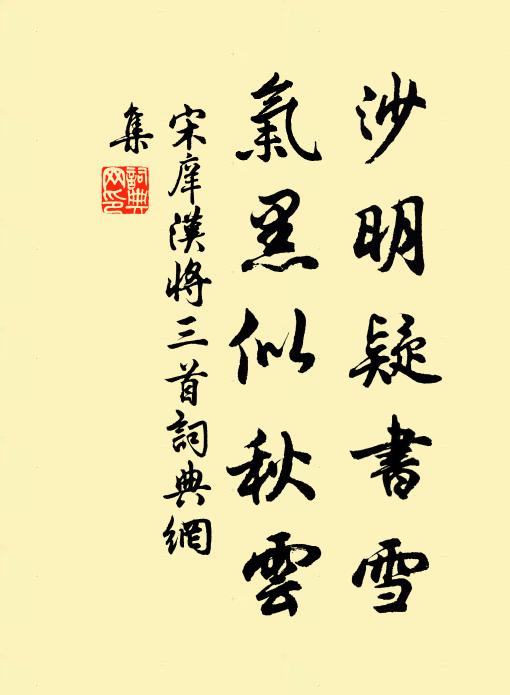 沙明疑書雪
氣黑似秋雲
宋庠漢將三首詞典網
集
詞典
网印